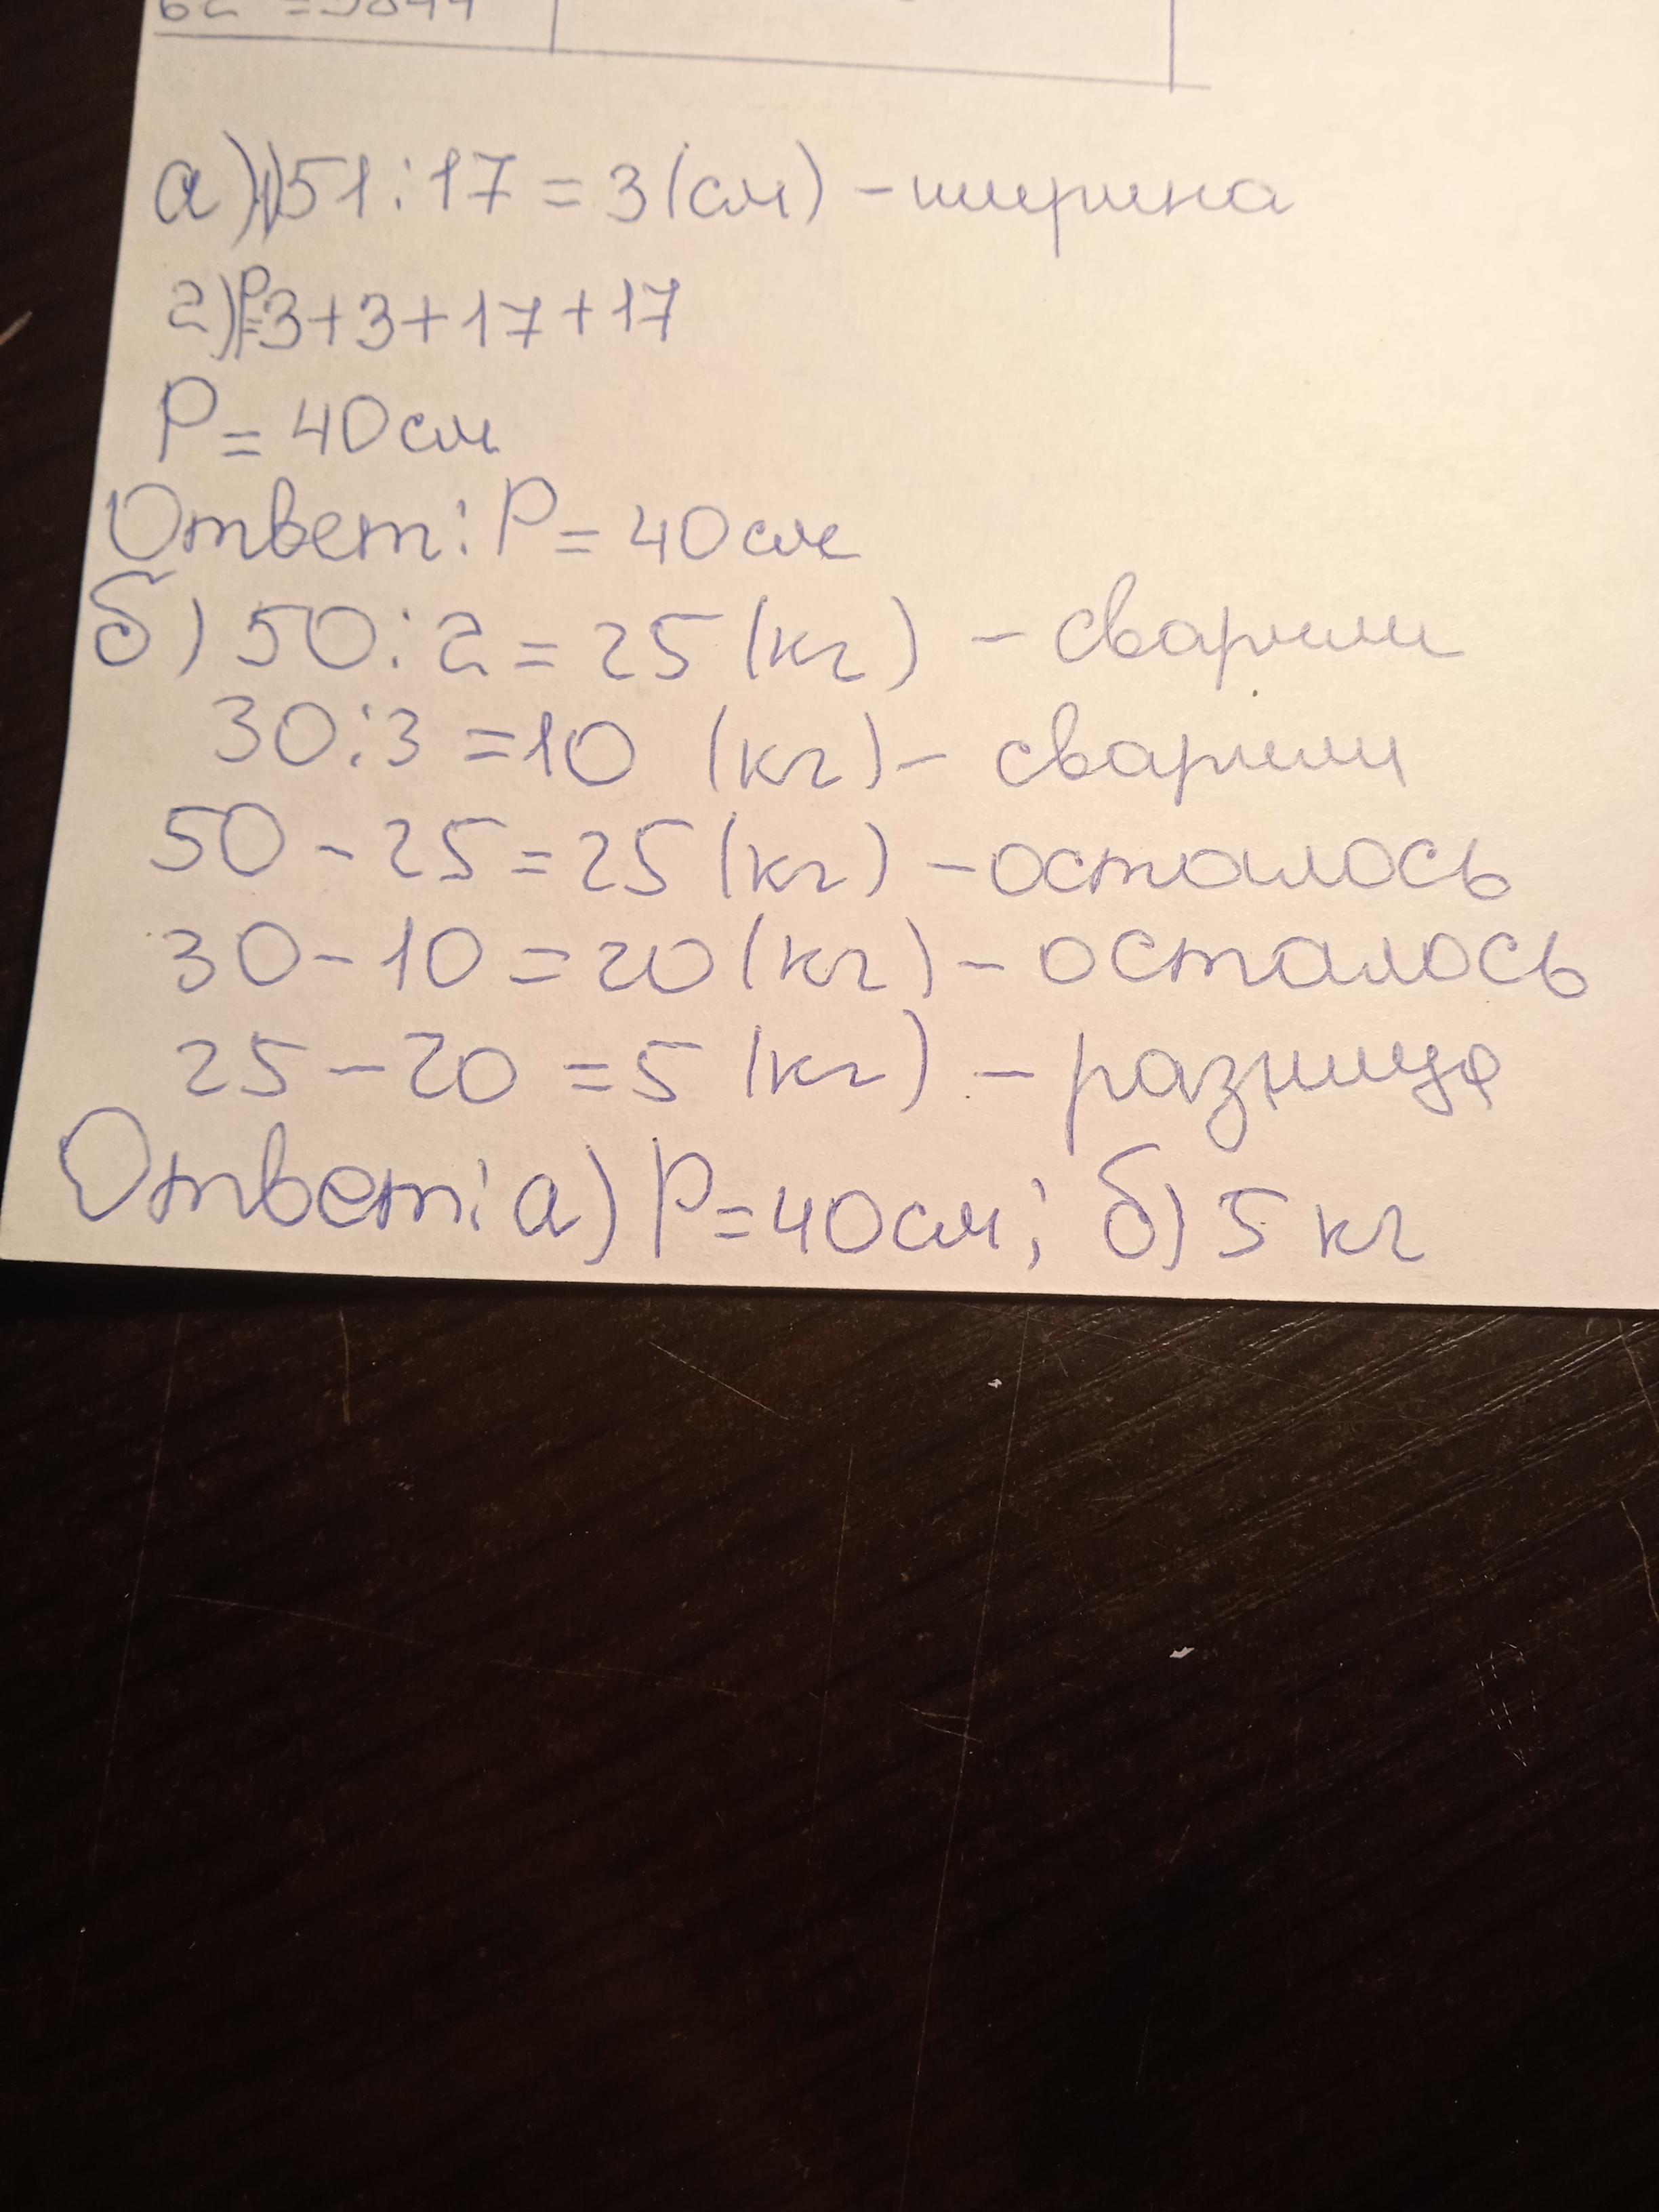 62 = 3844
а) 1) 51 : 17 = 3 (см) - ширина
2) P = 3 + 3 + 17 + 17
P = 40 см
Ответ: P = 40 см
б) 50 : 2 = 25 (кг) - сварили
30 : 3 = 10 (кг) - сварили
50 - 25 = 25 (кг) - осталось
30 - 10 = 20 (кг) - осталось
25 - 20 = 5 (кг) - разница
Ответ: а) P = 40 см; б) 5 кг